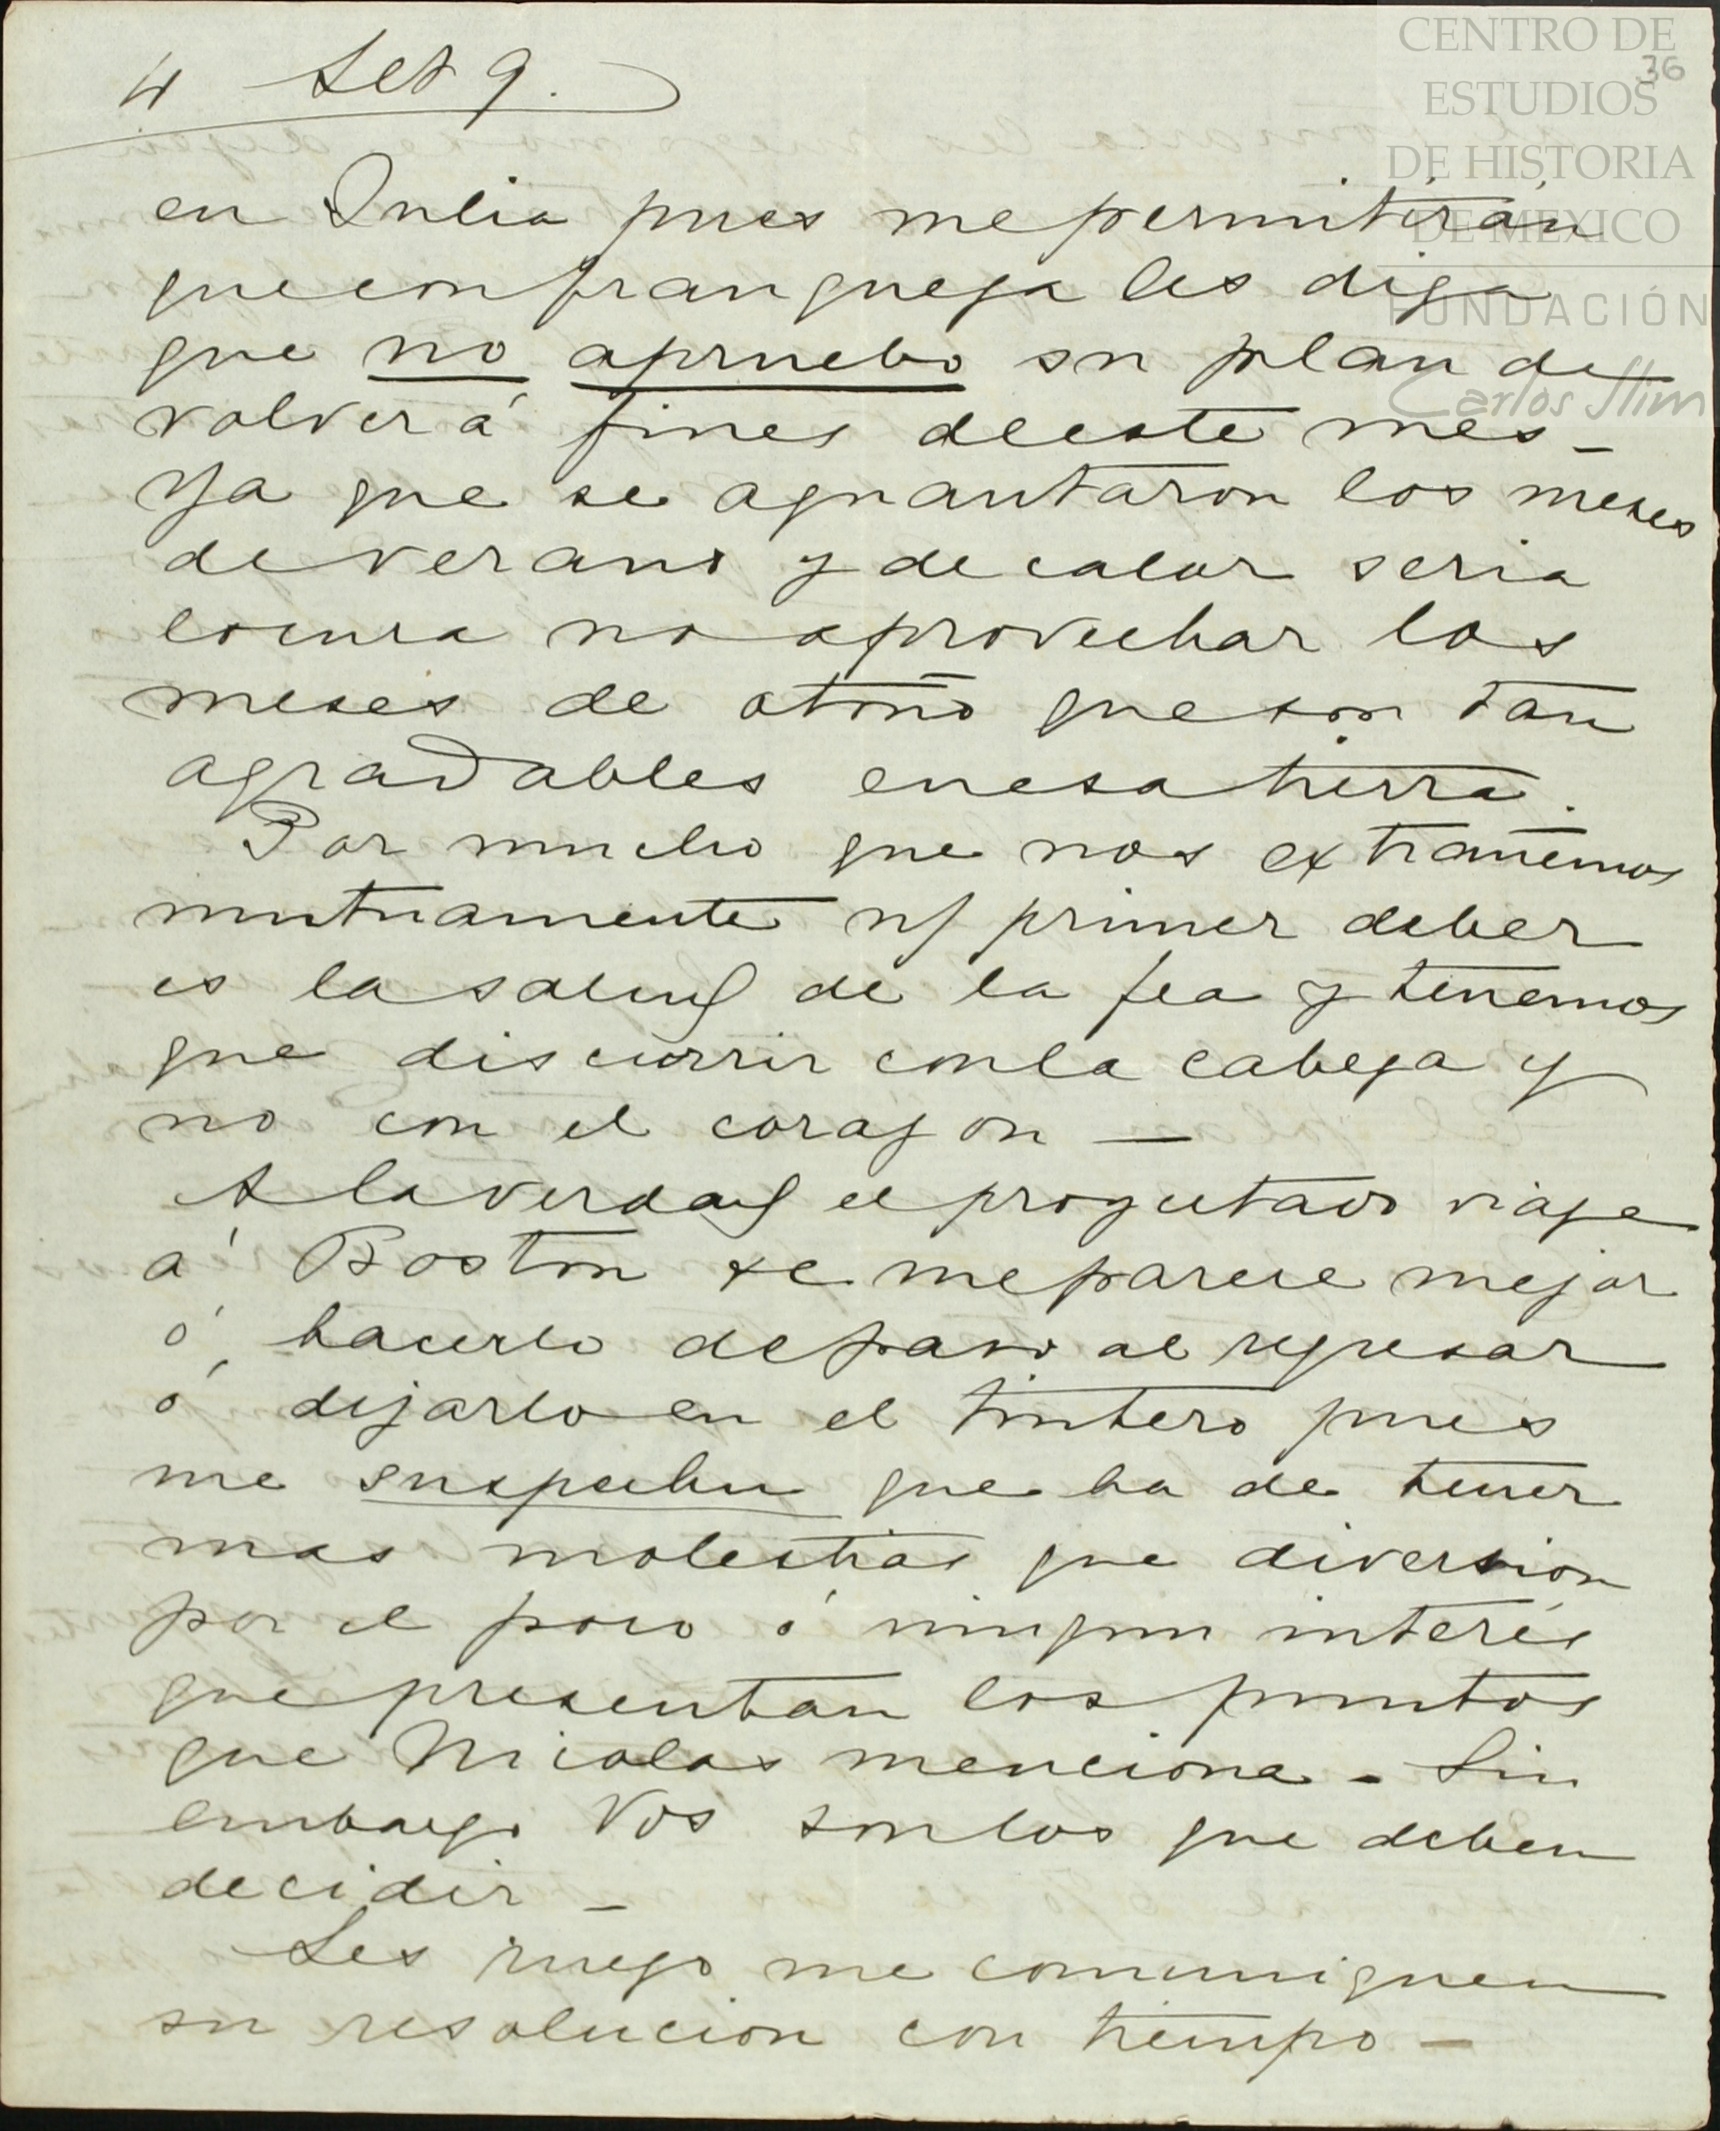 4 Set 9.
36
en Julia pues me permitirán
que con franqueza les diga
que no apruebo su plan de
volver á fines de este mes -
Ya que se aguantaron los meses
de verano y de calor seria
locura no aprovechar los
meses de otoño que son tan
agradables en esa tierra.
Por mucho que nos extrañemos
mutuamente n/ primer deber
es la salud de la fea y tenemos
que discurrir con la cabeza y
no con el corazon —
A la verdad el proyectado viaje
á Boston se me parece mejor
ó hacerlo de paso al regresar
ó dejarlo en el tintero pues
me suspechu que ha de tener
mas molestias que diversion
por el poco ó ningun interés
que presentan los puntos
que Nicolas menciona - Sin
embargo Vds son los que deben
decidir -
Les ruego me comuniquen
su resolucion con tiempo -
CENTRO DE
ESTUDIOS
DE HISTORIA
DE MEXICO
FUNDACIÓN
Carlos Slim